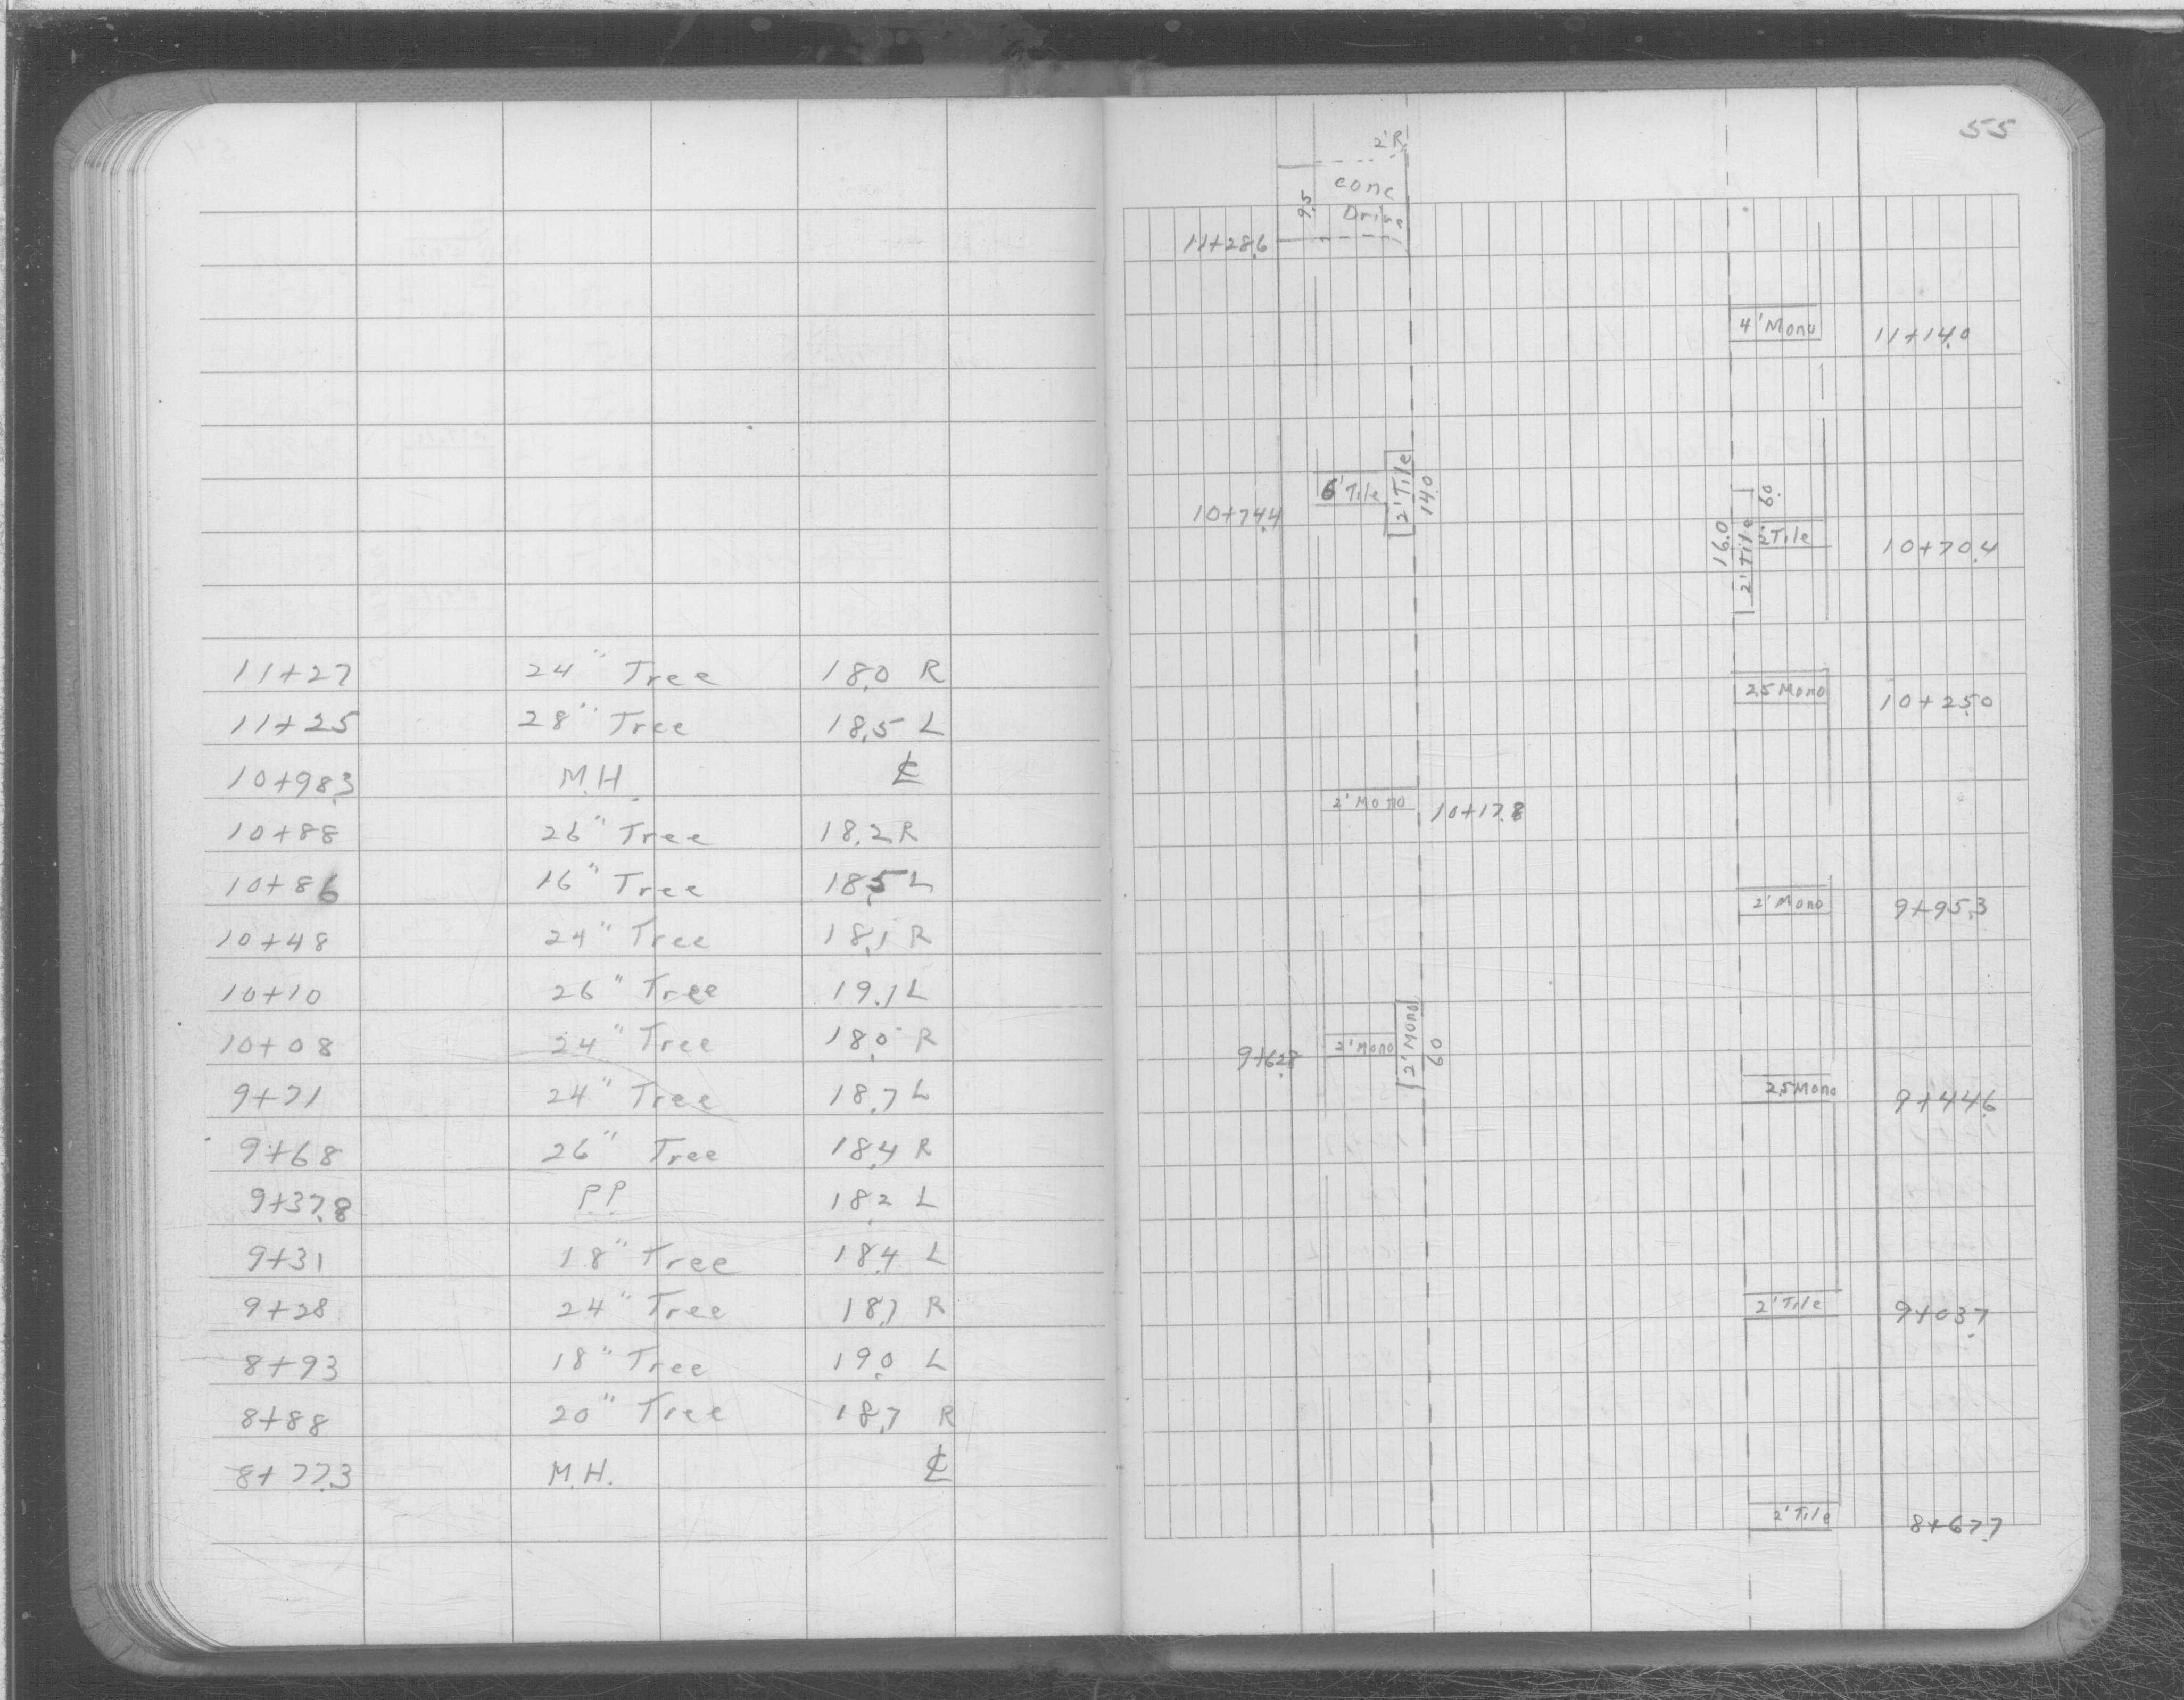 11+27 24" Tree 18.0 R
11+25 28" Tree 18.5 L
10+98.3 M.H. ℄
10+88 26" Tree 18.2 R
10+86 16" Tree 18.5 L
10+48 24" Tree 18.1 R
10+10 26" Tree 19.1 L
10+08 24" Tree 18.0 R
9+71 24" Tree 18.7 L
9+68 26" Tree 18.4 R
9+37.8 P.P. 18.2 L
9+31 18" Tree 18.4 L
9+28 24" Tree R
8+93 18" Tree 19.0 L
8+88 20" Tree 18.7 R
8+77.3 M.H. ℄
55
2'R
conc
9.5 Drive
11+28.6
4' Mono 11+14.0
10+74.4 6' Tile 2' Tile 14.0
16.0 2' Tile 6.0 2' Tile 10+70.4
2.5 Mono 10+25.0
2' Mono 10+17.8
2' Mono 9+95.3
9+62.8 2' Mono 2' Mono 6.0
2.5 Mono 9+44.6
2' Tile 9+03.7
2' Tile 8+67.7